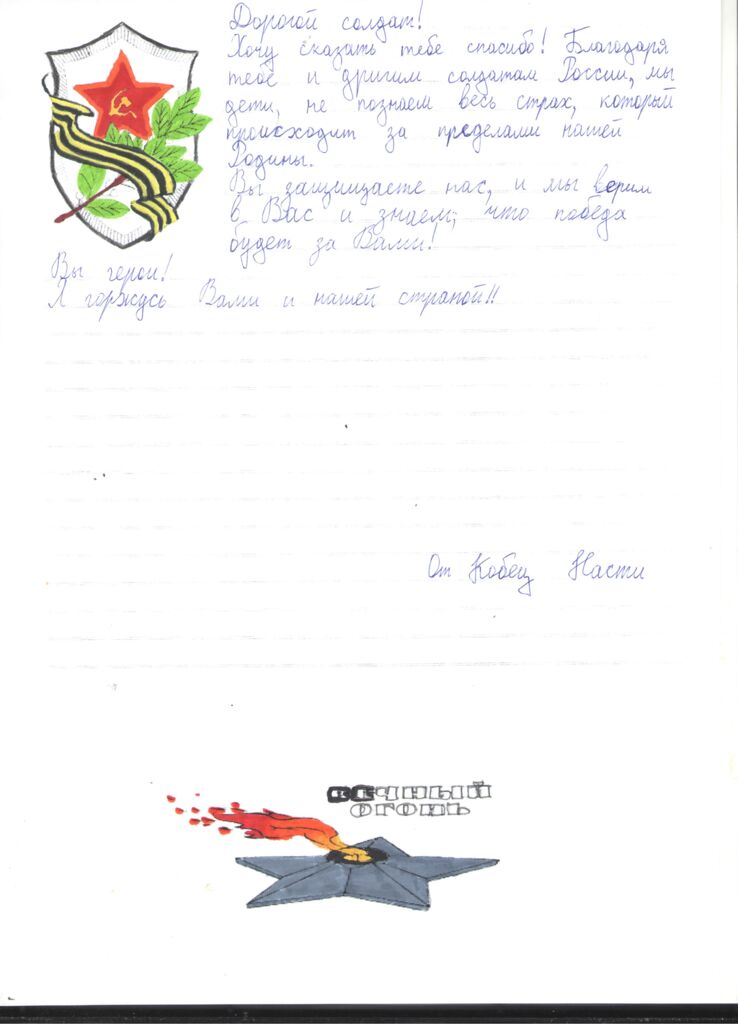 Дорогой солдат!
Хочу сказать тебе спасибо! Благодаря
тебе и другим солдатам России, мы
дети, не познаем весь страх, который
происходит за пределами нашей
Родины.
Вы защищаете нас, и мы верим
в Вас и знаем, что победа
будет за Вами!
Вы герои!
Я горжусь Вами и нашей страной!!
От Кобец Насти
ВЕЧНЫЙ
ОГОНЬ